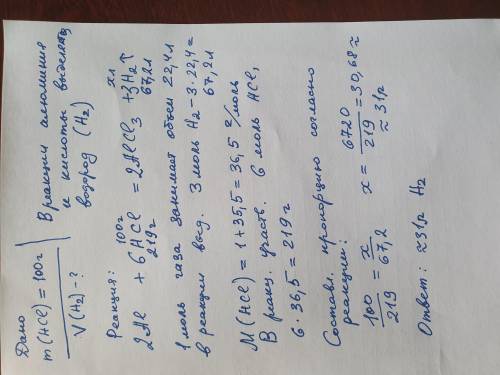 Дано
m(HCl) = 100г
V(H₂) - ?
В реакции алюминия
и кислоты выделяется
водород (H₂)
Реакция:
100г хл
2Al + 6HCl = 2AlCl₃ + 3H₂↑
219г 67,2л
1 моль газа занимает объем 22,4л
в реакции выд. 3 моль H₂ - 3·22,4=
67,2л
M(HCl) = 1+35,5 = 36,5 г/моль
В реакц. участв. 6 моль HCl,
6·36,5 = 219 г
Составл. пропорцию согласно
реакции:
100/219 = x/67,2 x = 6720/219 = 30,68 ≈
≈ 31г
Ответ: ≈31г H₂